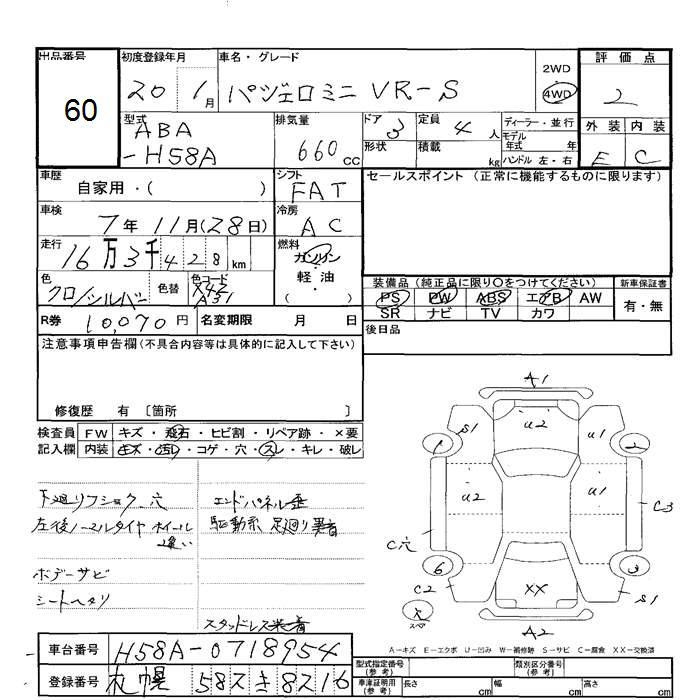 出品番号 初度登録年月 車名・グレード 2WD 評価点
60 20 1月 パジェロミニ VR-S 4WD 2
型式 排気量 ドア 定員 ディーラー・並行 外装 内装
ABA 660cc 3 4人 モデル年式 年
-H58A 形状 積載 kg ハンドル 左・右 E C
車歴 シフト セールスポイント (正常に機能するものに限ります)
自家用・( ) FAT
車検 冷房
7年 11月(28日) AC
走行 燃料
16万3千428km ガソリン
色 色替 色コード 軽油
クロ/シルバー X42 A31 ( )
装備品(純正品に限り○をつけてください) 新車保証書
PS PW ABS エアB AW 有・無
SR ナビ TV カワ
R券 10,070円 名変期限 月 日
後日品
注意事項申告欄(不具合内容等は具体的に記入して下さい)
修復歴 有 〔箇所 〕
検査員 FW キズ・飛石・ヒビ割・リペア跡・×要
記入欄 内装 キズ・汚レ・コゲ・穴・スレ・キレ・破レ
下廻リフショク、穴 エンドパネル歪
左後ノーマルタイヤ ホイール違い 駆動系、足廻り異音
ボデーサビ
シートヘタリ
スタッドレス装着
A1
S1 U2 U1
1 2
U2 U1 C3
C穴
6 3
C2 XX S1
スペア
A2
A-キズ E-エクボ U-凹み W-補修跡 S-サビ C-腐食 XX-交換済
車台番号 H58A-0718954
型式指定番号(参考) 類別区分番号(参考)
登録番号 札幌 582き8216
車庫証明用(参考) 長さ cm 幅 cm 高さ cm